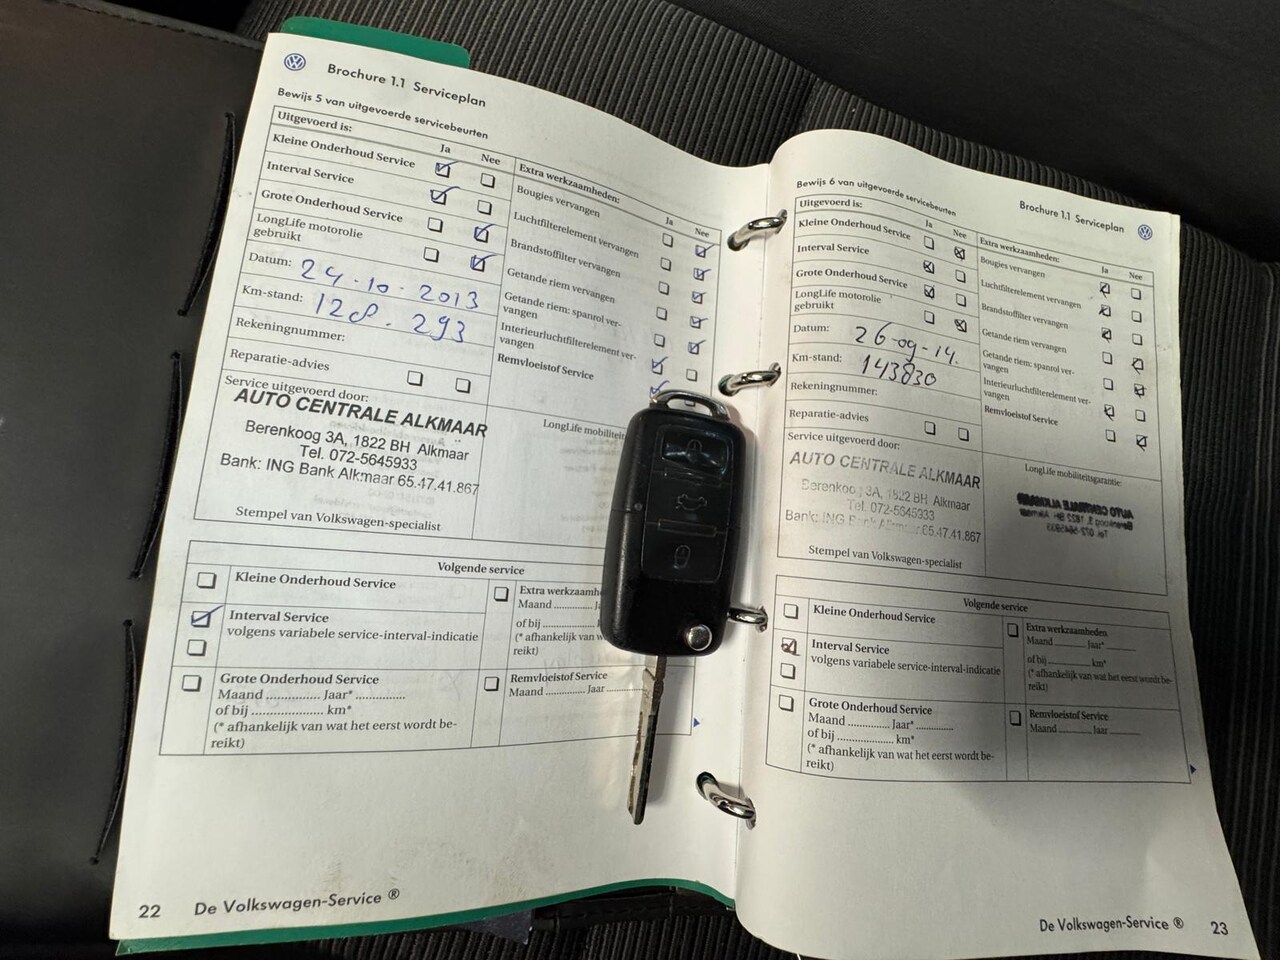 Brochure 1.1 Serviceplan
Bewijs 5 van uitgevoerde servicebeurten
Uitgevoerd is:
Ja Nee
Kleine Onderhoud Service
Interval Service
Grote Onderhoud Service
LongLife motorolie
gebruikt
Datum: 24-10-2013
Km-stand: 128.293
Rekeningnummer:
Reparatie-advies
Service uitgevoerd door:
AUTO CENTRALE ALKMAAR
Berenkoog 3A, 1822 BH Alkmaar
Tel. 072-5645933
Bank: ING Bank Alkmaar 65.47.41.867
Stempel van Volkswagen-specialist
Extra werkzaamheden:
Ja Nee
Bougies vervangen
Luchtfilterelement vervangen
Brandstoffilter vervangen
Getande riem vervangen
Getande riem: spanrol ver-
vangen
Interieurluchtfilterelement ver-
vangen
Remvloeistof Service
LongLife
Volgende service
Kleine Onderhoud Service
Interval Service
volgens variabele service-interval-indicatie
Grote Onderhoud Service
Maand .............. Jaar* ..............
of bij .................... km*
(* afhankelijk van wat het eerst wordt be-
reikt)
Extra
Maand ..............
of bij ..............
(* afhankelijk van
reikt)
Remvloeistof Service
Maand .............. Jaar ..............
22 De Volkswagen-Service ®
Brochure 1.1 Serviceplan
Bewijs 6 van uitgevoerde servicebeurten
Uitgevoerd is:
Ja Nee
Kleine Onderhoud Service
Interval Service
Grote Onderhoud Service
LongLife motorolie
gebruikt
Datum: 26-09-14.
Km-stand: 143830
Rekeningnummer:
Reparatie-advies
Service uitgevoerd door:
AUTO CENTRALE ALKMAAR
Berenkoog 3A, 1822 BH Alkmaar
Tel. 072-5645933
Bank: ING Bank Alkmaar 65.47.41.867
Stempel van Volkswagen-specialist
Extra werkzaamheden:
Ja Nee
Bougies vervangen
Luchtfilterelement vervangen
Brandstoffilter vervangen
Getande riem vervangen
Getande riem: spanrol ver-
vangen
Interieurluchtfilterelement ver-
vangen
Remvloeistof Service
LongLife mobiliteitsgarantie:
AUTO CENTRALE ALKMAAR
Volgende service
Kleine Onderhoud Service
Interval Service
volgens variabele service-interval-indicatie
Grote Onderhoud Service
Maand .............. Jaar* ..............
of bij .................... km*
(* afhankelijk van wat het eerst wordt be-
reikt)
Extra werkzaamheden
Maand ........... Jaar* ...........
of bij ................ km*
(* afhankelijk van wat het eerst wordt be-
reikt)
Remvloeistof Service
Maand ........... Jaar ...........
De Volkswagen-Service ® 23